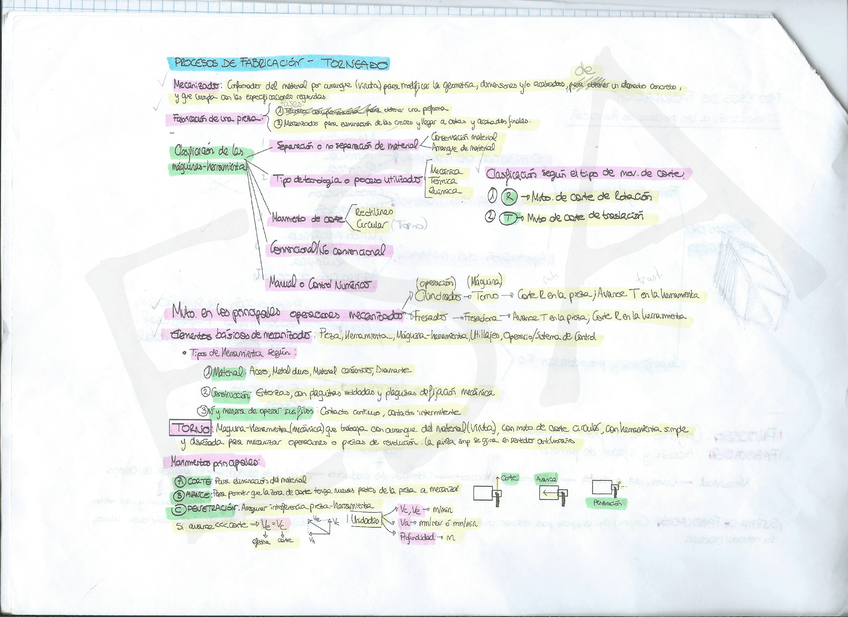 PROCESOS DE FABRICACIÓN - TORNEADO
de
Mecanizado: Conformador del material por arranque (viruta) para modificar la geometría, dimensiones y/o acabados, para obtener un elemento concreto,
y que cumpla con las especificaciones requeridas
Fabricación de una pieza
① obtener una preforma
② Mecanizados para eliminación de las creces y llegar a cotas y acabados finales.
Clasificación de las máquinas-herramienta
Separación o no separación de material
Conservación material
Arranque de material
Tipo de tecnología o proceso utilizados
Mecánica
Térmica
Química
Movimiento de corte
Rectilíneo
Circular
Convencional/No convencional
Manual o Control Numérico
Clasificación según el tipo de mov. de corte
① R → Mvto. de corte de rotación
② T → Mvto de corte de traslación
(operación) (Máquina)
Mvto. en los principales operaciones mecanizado
Cilindrados → Torno → Corte R en la pieza; Avance T en la herramienta
Fresados → Fresadora → Avance T en la pieza; Corte R en la herramienta
Elementos básicos de mecanizado: Pieza, Herramienta, Máquina-herramienta, Utillajes, Operario/Sistema de Control
• Tipos de Herramienta según:
① Material: Acero, Metal duro, Material cerámicos, Diamante
② Construcción: Enterizas, con plaquitas soldadas y plaquitas de fijación mecánica
③ Nº y manera de operar sus filos: Contacto continuo, contacto intermitente
TORNO: Máquina-Herramienta (mecánica) que trabaja con arranque del material (viruta), con mvto de corte circular, con herramienta simple
y diseñada para mecanizar operaciones o piezas de revolución. La pieza gira en sentido antihorario
Movimientos principales:
Ⓐ CORTE: Para eliminación del material
Ⓑ AVANCE: Para permitir que la zona de corte tenga nuevas partes de la pieza a mecanizar
Ⓒ PENETRACIÓN: Asegurar interferencia pieza-herramienta
Corte
Avance
Penetración
Si avance <<< corte → Ve = Vc
efectiva corte
Ve Vc
Va
Unidades
Vc, Ve → m/min
Va → mm/rev o mm/min
Profundidad → m